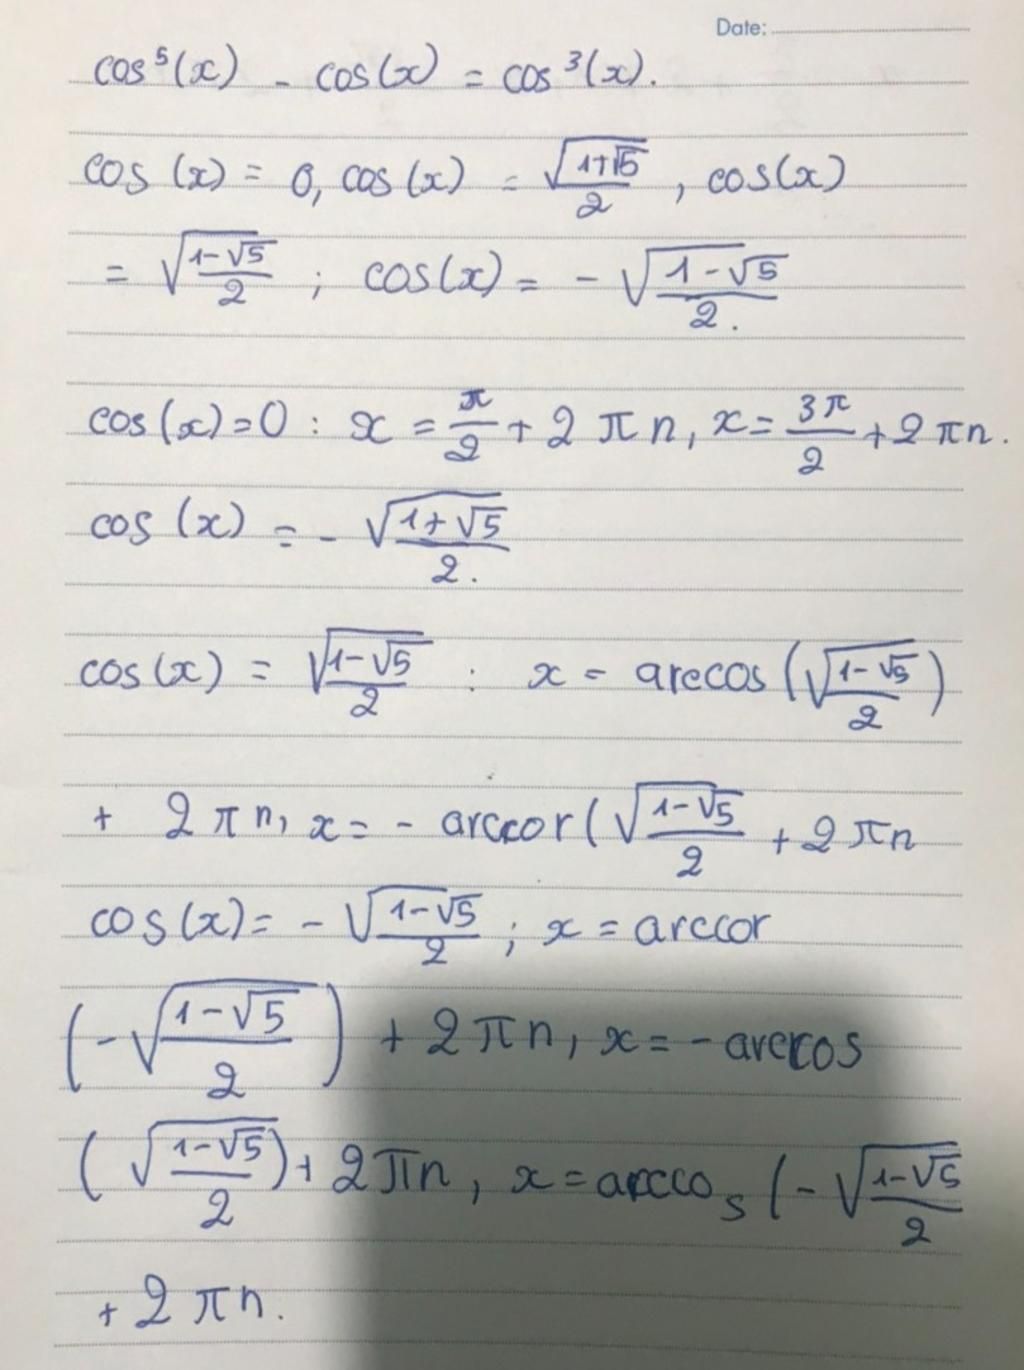 Date:
cos⁵(x) - cos(x) = cos³(x).
cos (x) = 0, cos(x) = √(1+√5)/2 , cos(x)
= √(1-√5)/2 ; cos(x) = - √(1-√5)/2.
cos(x)=0 : x = π/2 + 2πn, x = 3π/2 + 2πn.
cos (x) = - √(1+√5)/2.
cos(x) = √(1-√5)/2 : x = arccos (√(1-√5)/2)
+ 2πn, x = - arccor (√(1-√5)/2 + 2πn
cos(x) = - √(1-√5)/2 ; x = arccor
(-√(1-√5)/2) + 2πn, x = - arccos
(√(1-√5)/2) + 2πn, x = arccos (-√(1-√5)/2
+ 2πn.